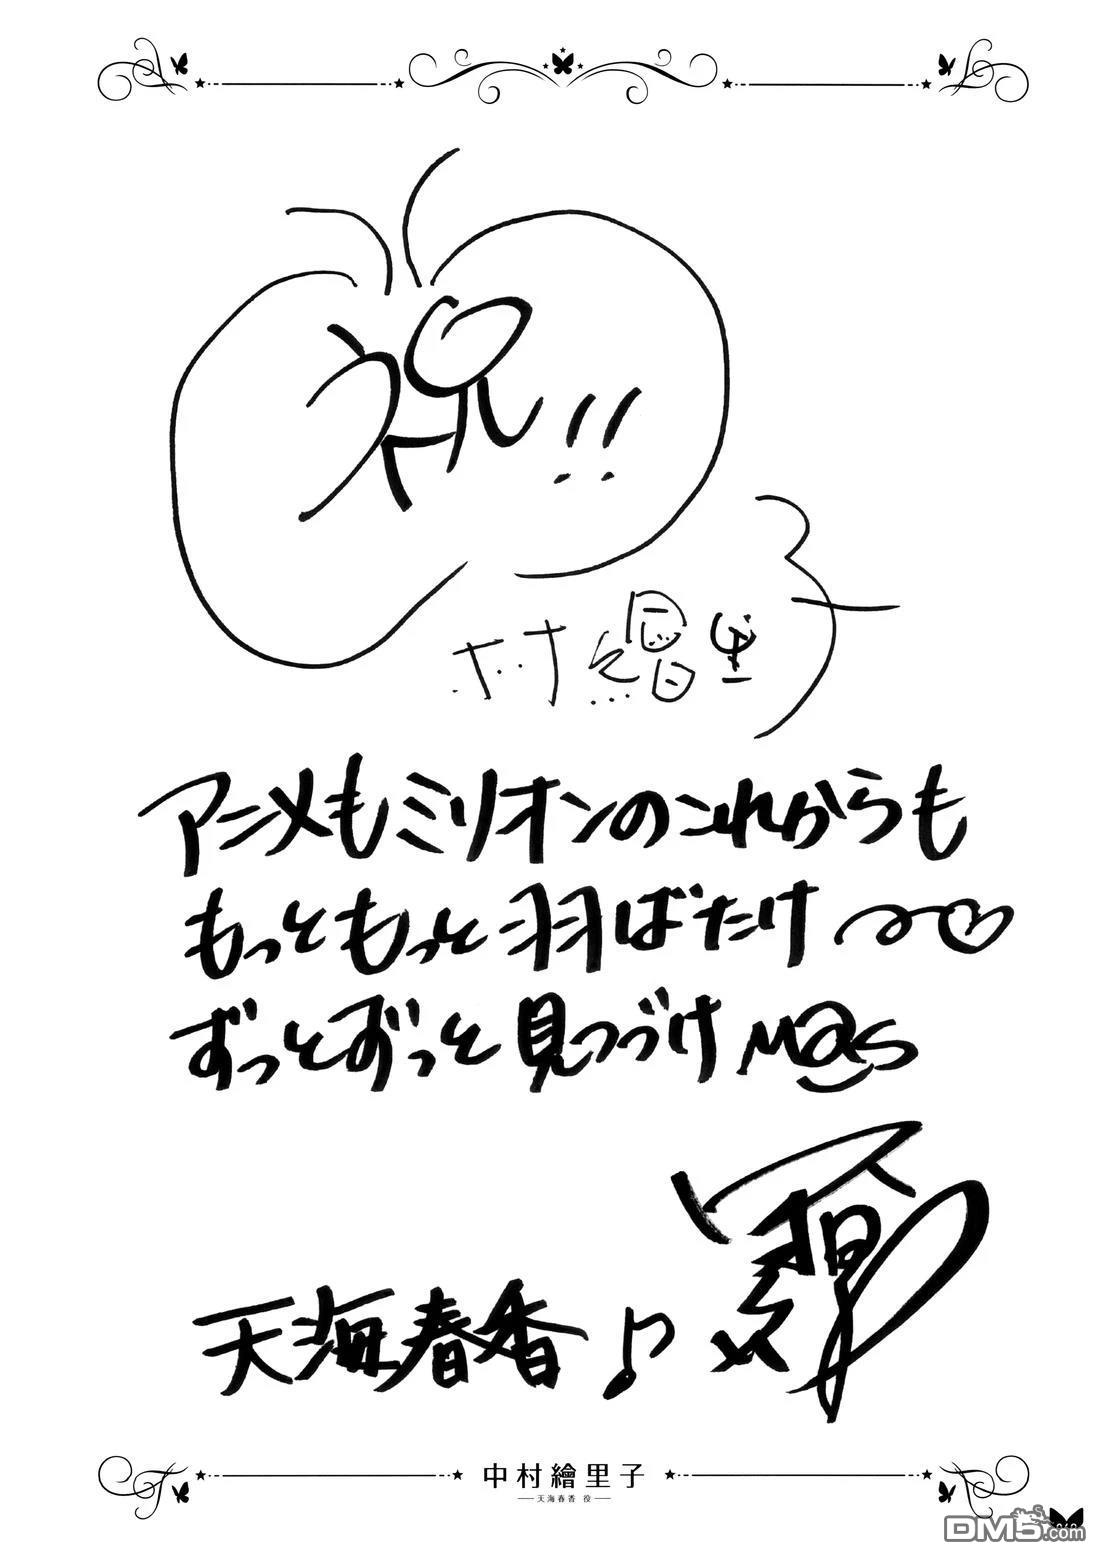 祝!!
村繪里子
アニメもミリオンのこれからも
もっともっと羽ばたけ〜♡
ずっとずっと見つづけM@S
天海春香♪
中村繪里子
天海春香 役
DM5.com